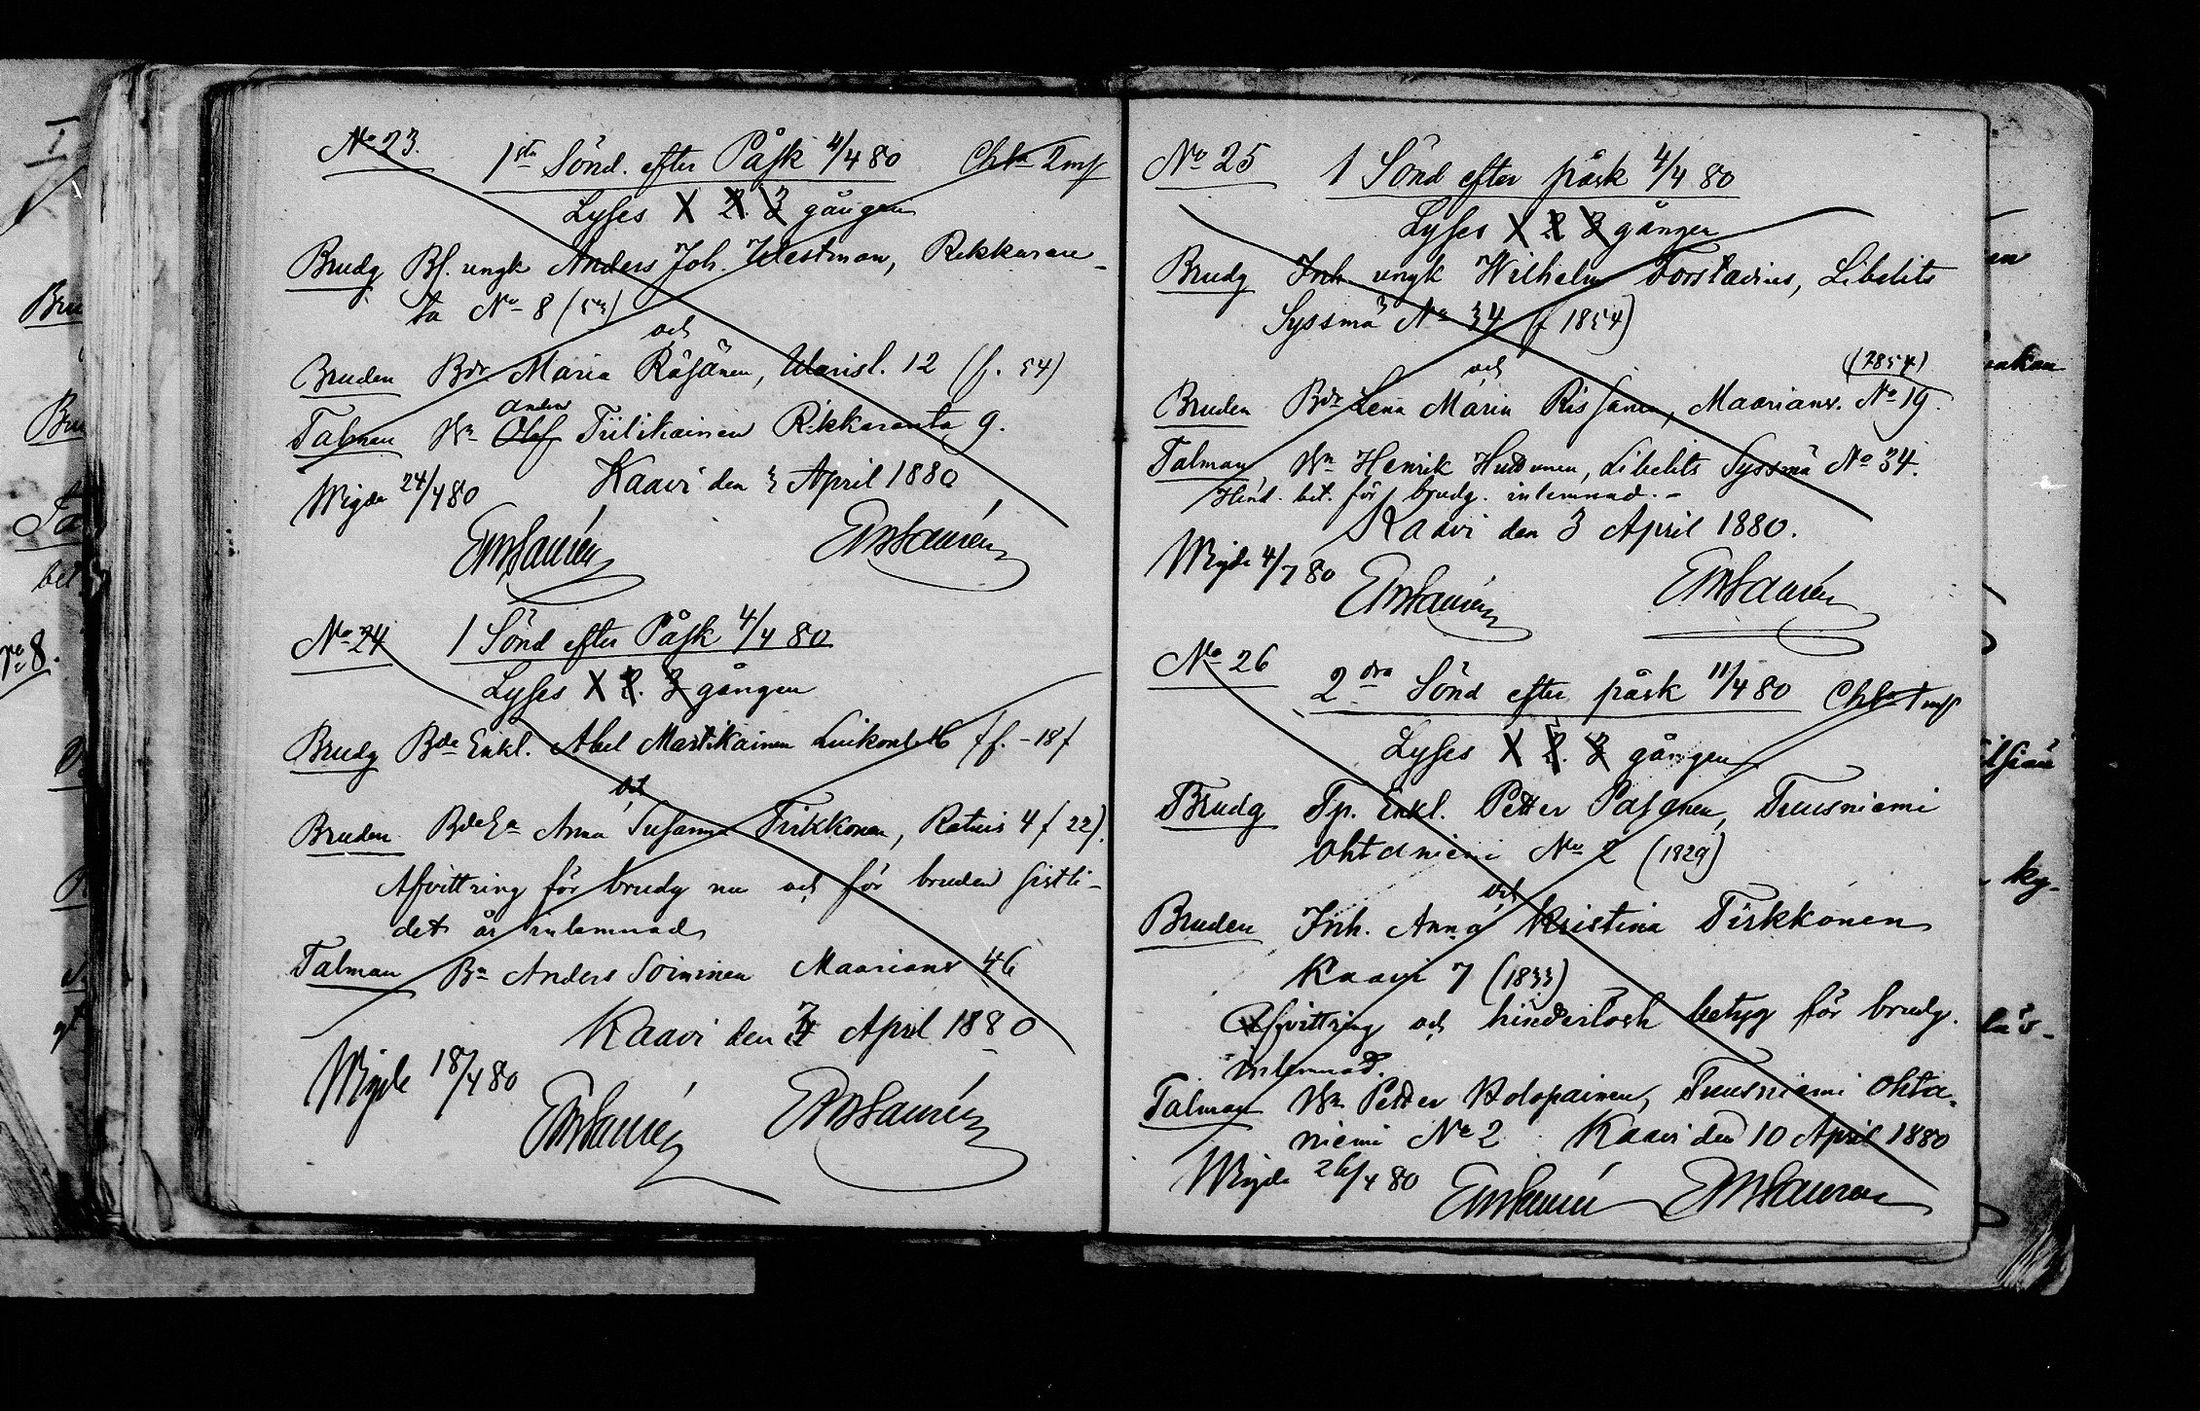 No 23. 1sta Sönd. efter Påsk 4/4 80
Lyses X 2. 3 gången
Brudg Bf. ungk Anders Joh. Westman, Rikkaran-
ta No 8 (53)
och
Bruden Bdr Maria Räsänen, Warisl. 12 (f. 54)
Anders
Talman Bn Olof Tiilikainen Rikkaranta 9.
Kaavi den 3 April 1880
Wigde 24/4 80
No 24 1 Sönd efter Påsk 4/4 80
Lyses X 2. 3 gången
Brudg Bde Enkl. Abel Martikainen
och
Bruden Anna Susanna Tirkkonen, Ratuis 4 (22).
Afvittring för brudg nu och för bruden sistli-
det år inlemnad
Talman Bn Anders Soininen Maarianv 46
Kaavi den 3 April 1880
Wigde 18/4 80
No 25 1 Sönd efter påsk 4/4 80
Lyses X 2 3 gången
Brudg Inh. ungk Wilhelm Forstadius, Libelits
Syssmä No 34 (f 1854)
och
(1854)
Bruden Bdr Lena Maria Rissanen, Maarianv. No 19.
Talman Bn Henrik Huttunen, Libelits Syssmä No 34.
Hind. bet. för brudg. inlemnad. -
Kaavi den 3 April 1880.
Wigde 4/7 80
No 26 2dra Sönd efter påsk 11/4 80
Lyses X 2. 3 gången
Brudg Tp. Enkl. Petter Pasanen, Tuusniemi
Ohtaniemi No 2 (1829)
och
Bruden Inh. Anna Kristina Tirkkonen
Kaavi 7 (1833)
Afvittring och hinderlösh betyg för brudg.
inlemnad.
Talman Bn Petter Holopainen, Tuusniemi Ohta-
niemi No 2 Kaavi den 10 April 1880
Wigde 26/4 80